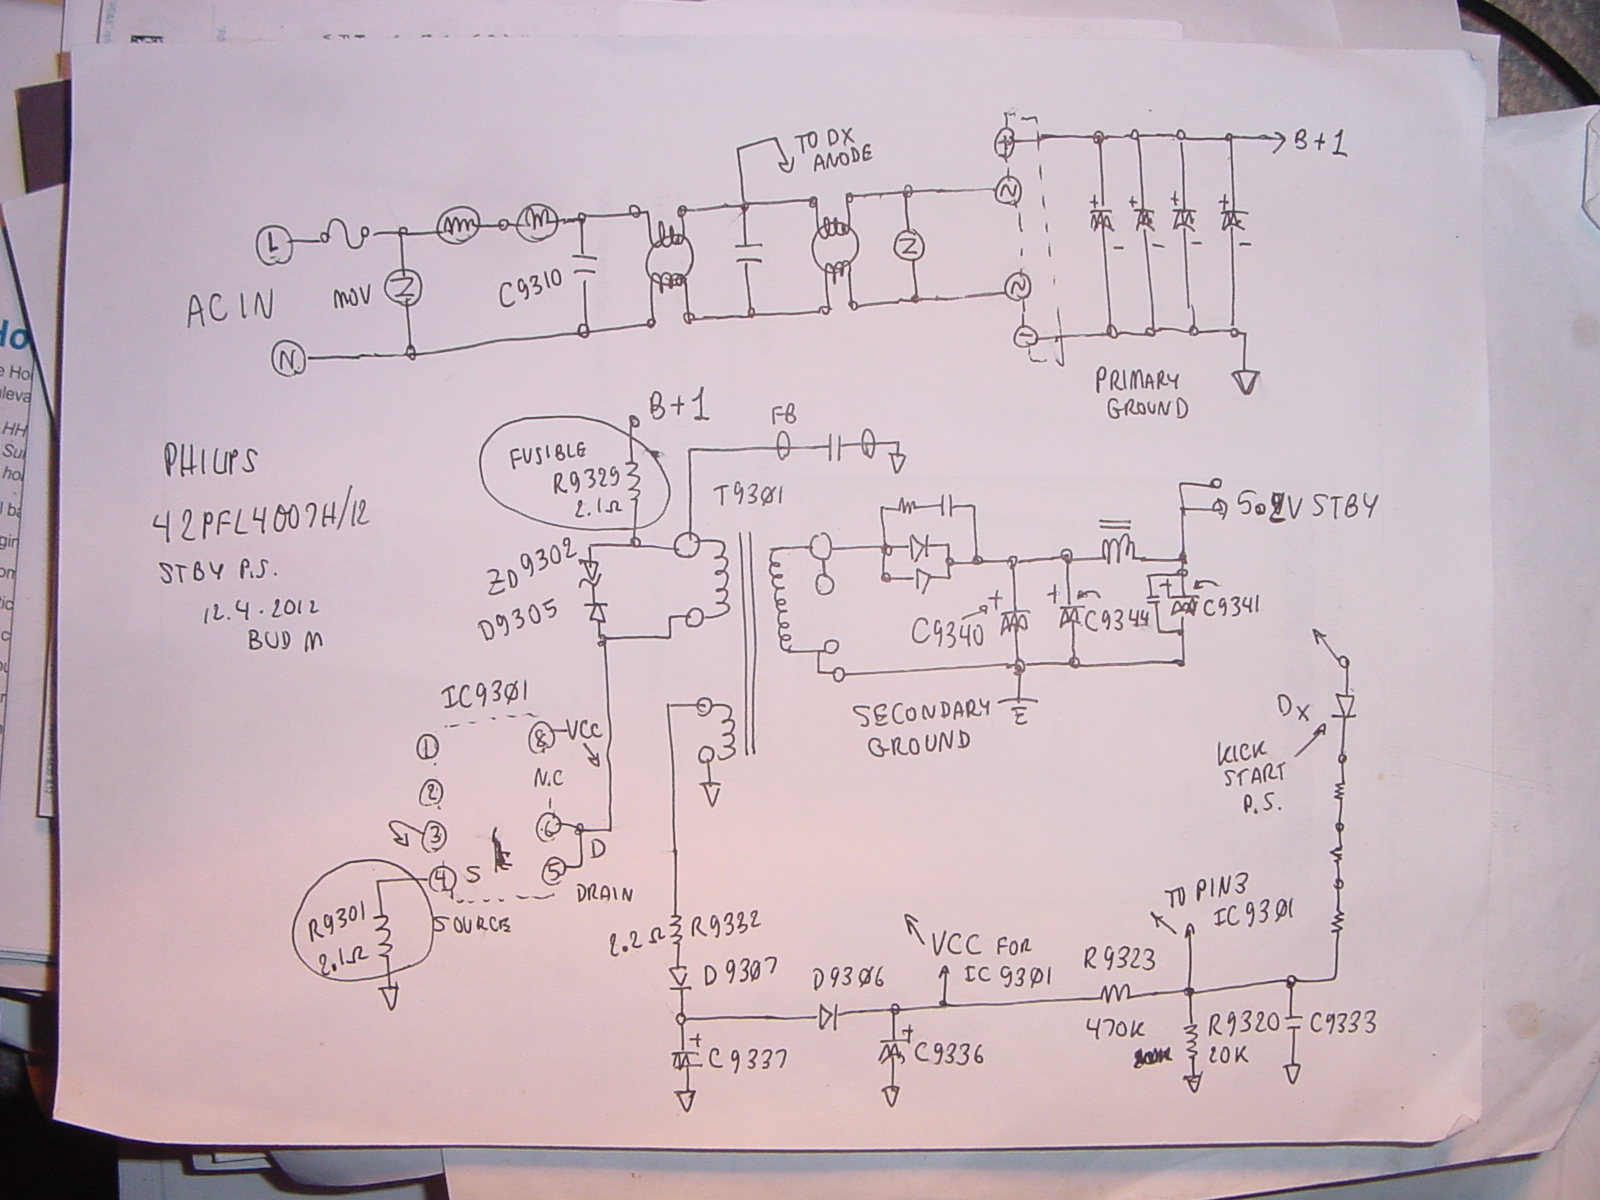 TO DX
ANODE
B+1
+
N
L
AC IN
MOV
Z
C9310
Z
N
N
−
+
−
+
−
+
−
+
−
PRIMARY
GROUND
PHILIPS
42PFL4007H/12
STBY P.S.
12.4.2012
BUD M
B+1
FUSIBLE
R9329
2.1Ω
FB
T9301
ZD9302
D9305
STBY
+
C9340
+
C9344
+
C9341
SECONDARY
GROUND
E
IC9301
1
2
3
4
S
8
VCC
N.C
6
5
D
DRAIN
SOURCE
R9301
2.1Ω
DX
KICK
START
P.S.
2.2Ω
R9332
D9307
D9306
VCC FOR
IC 9301
TO PIN3
IC9301
R9323
470K
R9320
20K
C9333
+
C9337
+
C9336
Ho
e Ho
uleva
HH
Su
ho